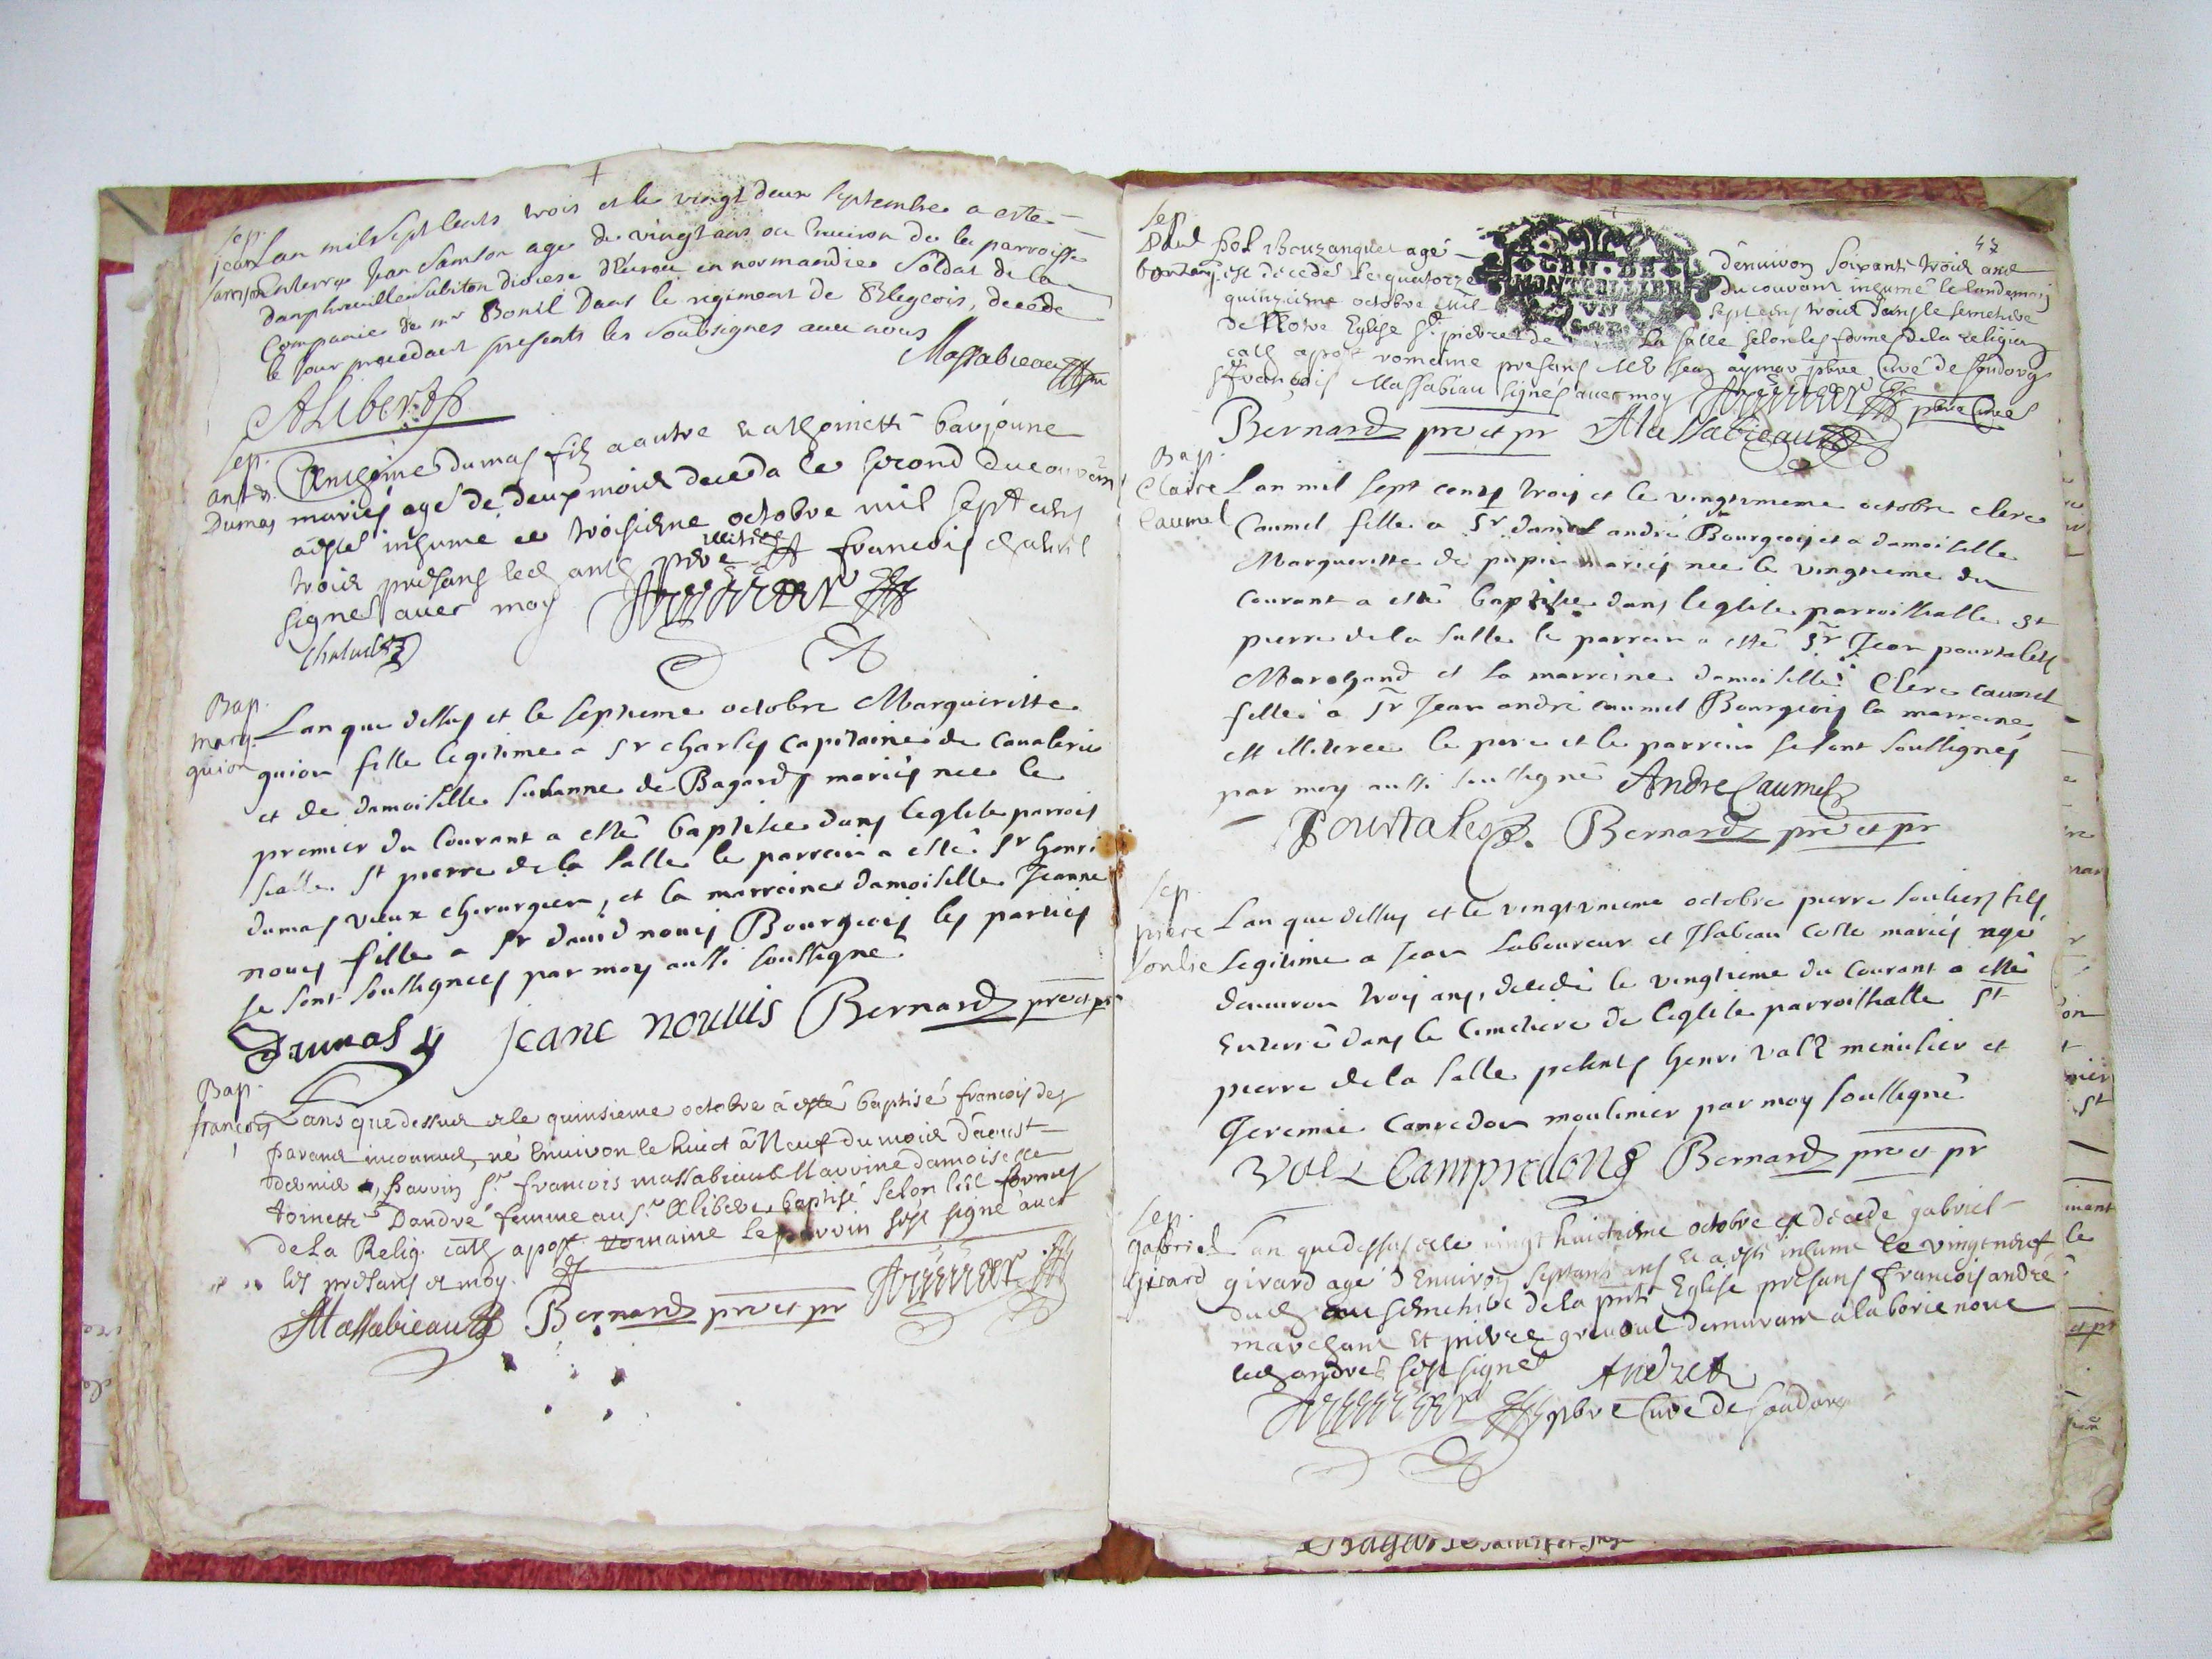 Sep.
jean
samson
Lan mil sept cents trois et le vingt deux septembre a este
enterre Jean Samson age de vingt ans ou environ de la parroisse
diocese en normandie soldat de la
compagnie de mr Bonil dans le regiment de Blegeois, decede
le jour precedant presents les soubsignes avec nous
Massabieau
Aliber
Sep.
ant.
Dumas
Anthoine dumas filz a autre et a thoinette baujoune
mariés agé de deux mois deceda le second du couvant
a esté inhumé ce troisieme octobre mil sept cens
trois presans led anth pbre illitere françois chabril
signés avec moy
Chalvet
Bap.
marg.
guion
Lan que dessus et le septieme octobre Margueritte
guion fille legitime a sr charles capitaine de cavalerie
et de damoiselle susanne de Bagards mariés nee le
premier du courant a esté baptisee dans leglise parrois
sialle st pierre de la salle le parrein a esté sr henri
dumas vieux chirurgien, et la marreine damoiselle Jeanne
noues fille a sr david noues Bourgeois les parties
se sont soussignees par moy aussi soussigné
Dumas Jeane nouuis Bernard pre et pr
Bap.
françois
Lans que dessus et le quinsieme octobre à esté baptisé françois des
parans inconnus, né environ le huict à Neuf du mois d'aoust
dernier, parrin sr. françois massabieau Marrine damoiselle
toinette Dandré femme au sr. Aliber, baptisé selon les formes
de la Relig. cath apost. romaine le parrin sest signé avec
les presans et moy.
Massabieau Bernard pre et pr
47
Sep.
Paul
bouzanq.
Pol Bouzanquet agé denviron soixante trois ans
est decedé le quatorze du couvant inhumé le landemain
quinzieme octobre mil sept cens trois dans le semetiere
de Notre Eglise st. pierre de la salle selon les formes de la religion
cath apost romaine presans Mr Jean aymar pbre Curé de soudorgs
sr françois Massabiau signés avec moy pbre Curé
Bernard pre et pr Massabieau
GEN. DE
MONTPELLIER
UN
Bap.
Claire
Caumel
Lan mil sept cents trois et le vingtunieme octobre clere
Caumel fille a sr. daniel andré Bourgeois et a damoiselle
Margueritte de mariés nee le vingtieme du
courant a esté baptisee dans leglise parroissialle st
pierre de la salle le parrein a esté sr Jean pourtales
Marchand et la marreine damoiselle Clere caumel
fille a sr Jean andré caumel Bourgeois la marreine
est illiteree le pere et le parrein se sont soussignés
par moy aussi soussigné Andre Caumel
Pourtales. Bernard pre et pr
Sep
pierre
soulie
Lan que dessus et le vingtunieme octobre pierre souliers fils
legitime a Jean Laboureur et Isabeau Coste mariés agé
denviron trois ans, decedé le vingtieme du courant a esté
enterré dans le cimetiere de leglise parroissialle st
pierre de la salle presents henri valz menusier et
Jeremie Camredon moulinier par moy soussigné
Valz Campredong Bernard pre et pr
Sep.
gabriel
Girard
Lan que dessus et le vingt huictieme octobre est decedé gabriel
girard agé denviron septante ans et a esté inhumé le vingtneuf
dud au semetiere de la pnte Eglise presans françois andré
marchant et pierre demurant a la borie nove
led andré sest signé André
pbre Curé de soudorgs